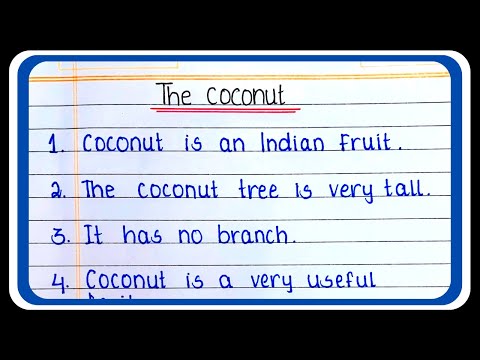 The Coconut
1. Coconut is an Indian Fruit.
2. The coconut tree is very tall.
3. It has no branch.
4. Coconut is a very useful